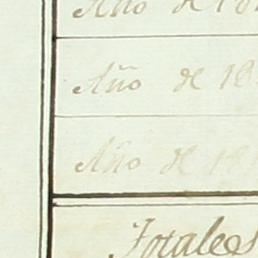 Año de 18
Año de 18
Año de 18
Totales